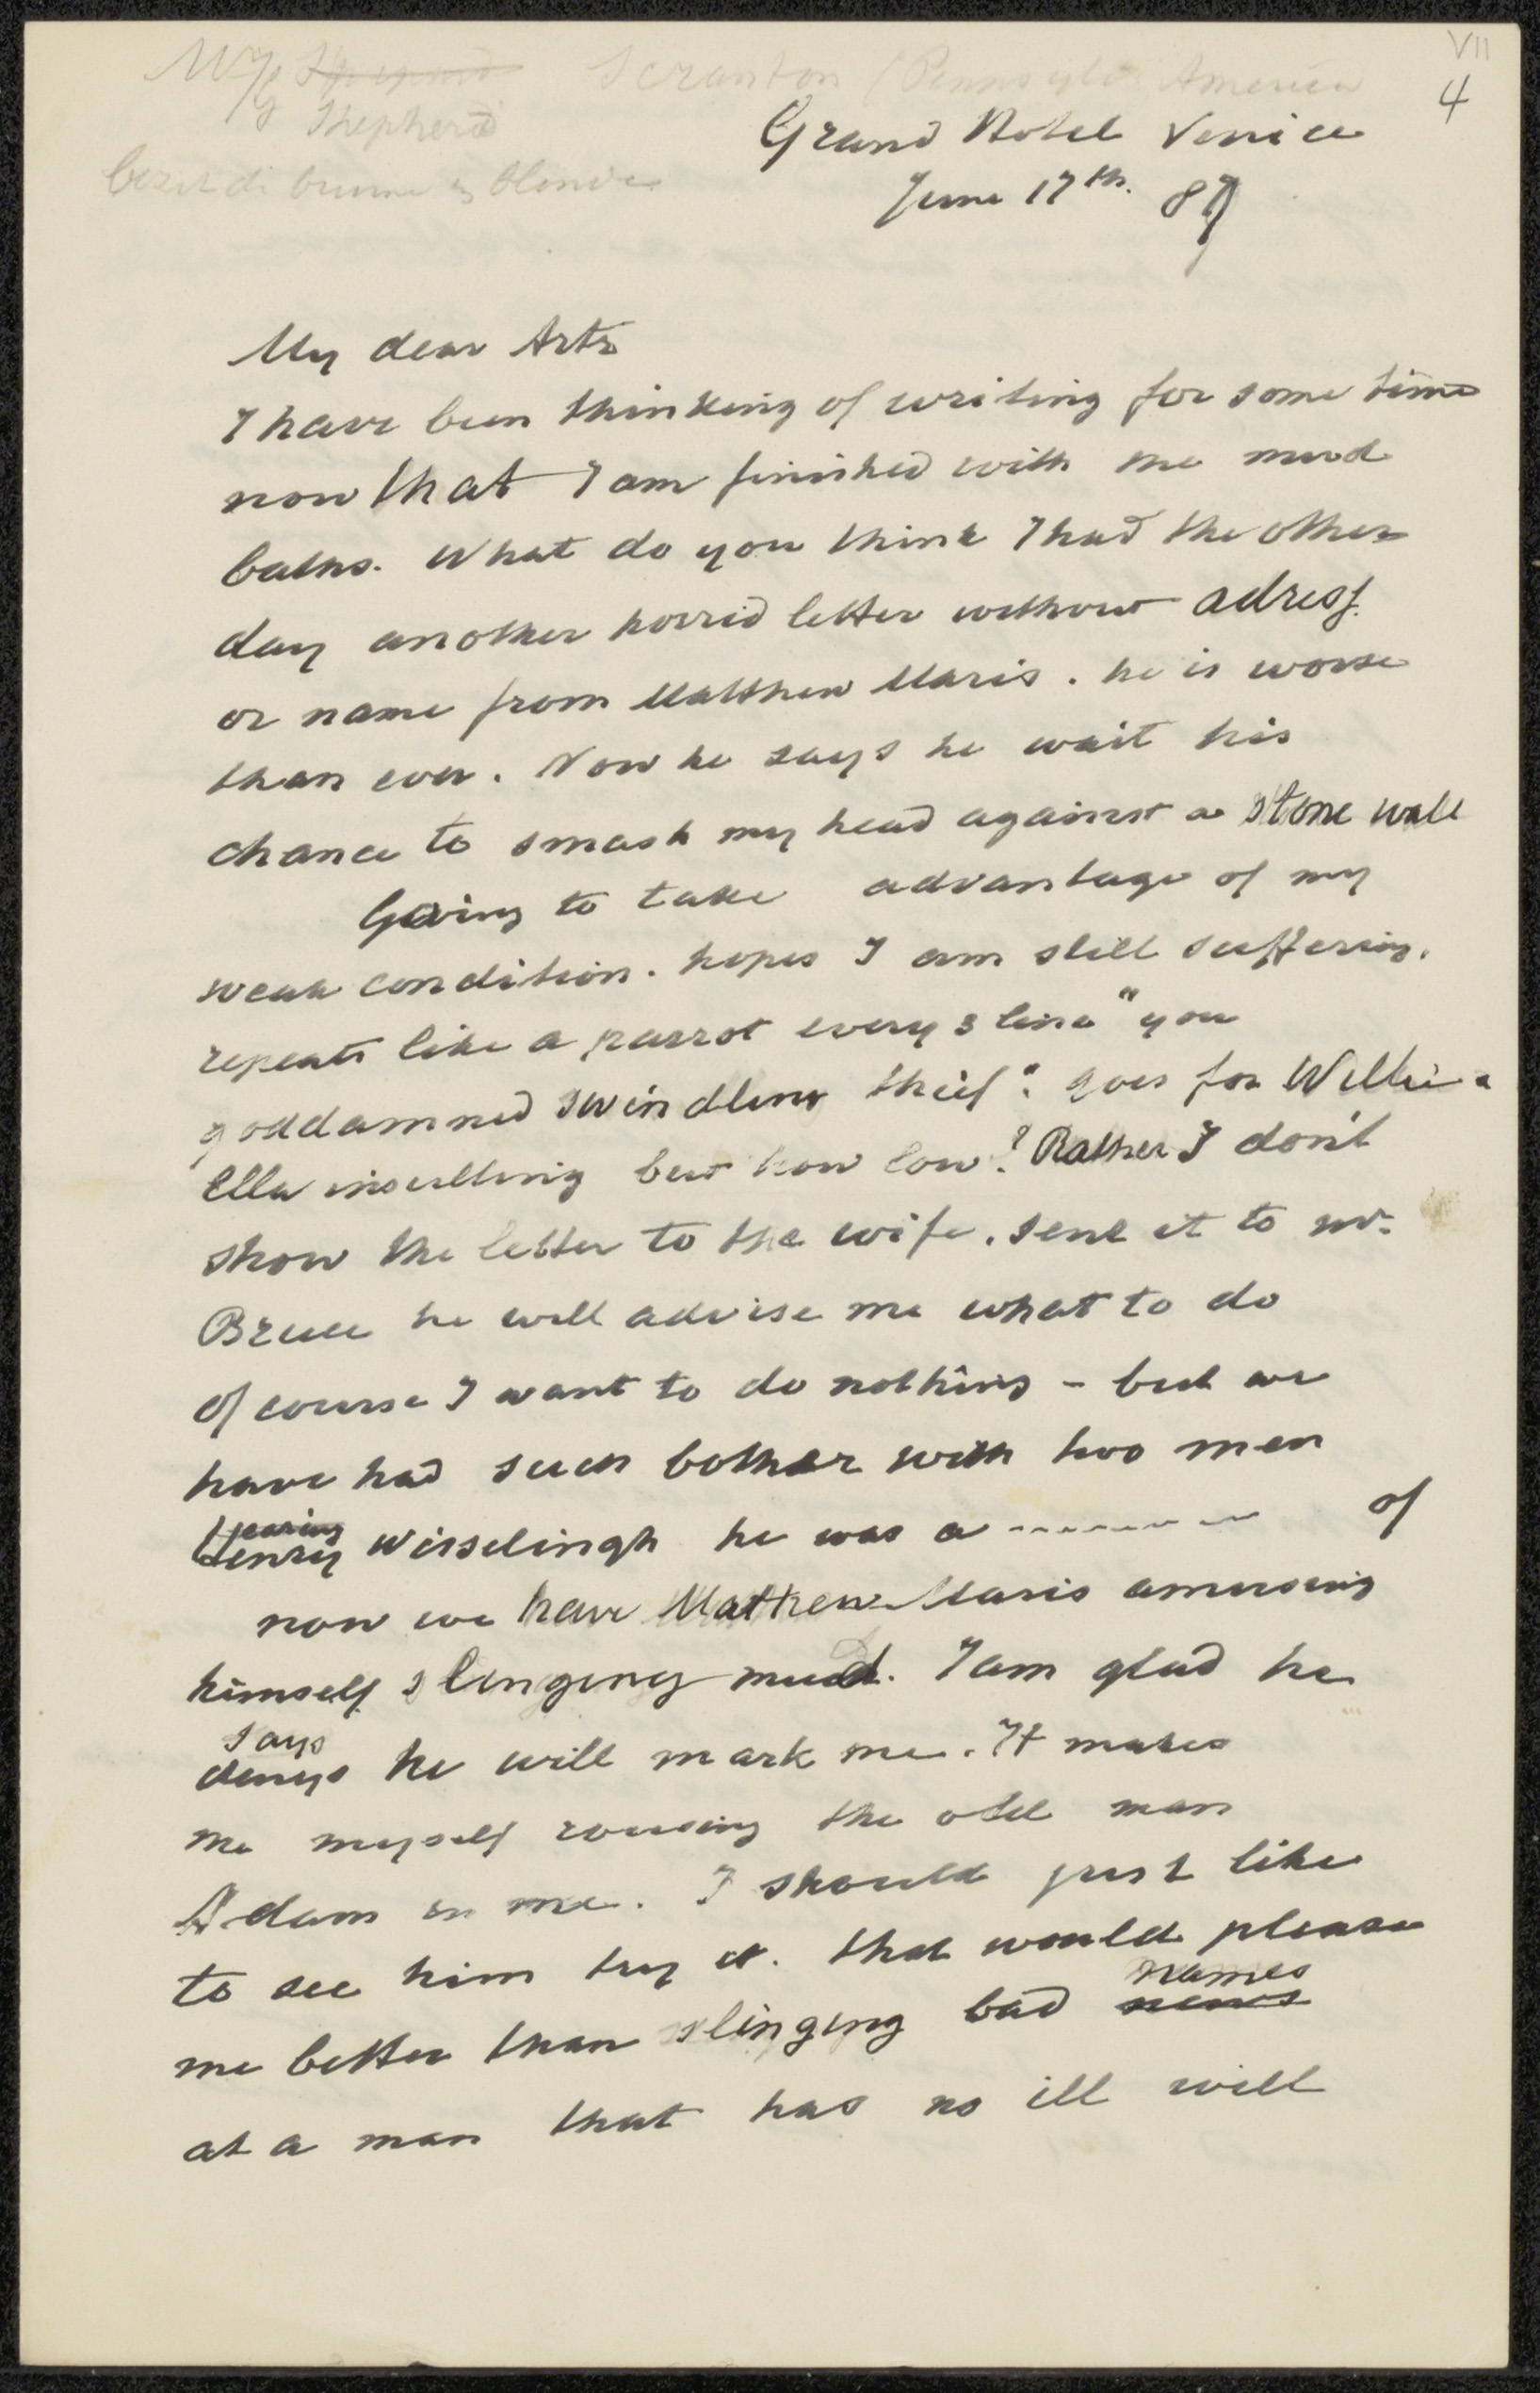 VII
4
Scranton (Pennsylv. America
Shepherd
Grand Hotel Venice
June 17th. 87
My dear Artz
I have been thinking of writing for some time
now that I am finished with me mud
baths. What do you think I had the other
day another horrid letter without adress.
or name from Matthew Maris. he is worse
than ever. Now he says he wait his
chance to smash my head against a stone wall
Going to take advantage of my
weak condition. hopes I am still suffering.
repeats like a parrot every 3 line "you
goddamned swindling thief". goes for Willie &
Ella insulting but how low? Rather I don't
show the letter to the wife. sent it to mr.
Bruce he will advise me what to do
of course I want to do nothing - but we
have had such bother with two men
Henry Wisselingh he was a ------- of
now we have Matthew Maris amusing
himself slinging mud. I am glad he
says
denys he will mark me. It makes
me myself rousing the old man
Adam in me. I should just like
to see him try it. that would please
names
me better than slinging bad news
at a man that has no ill will